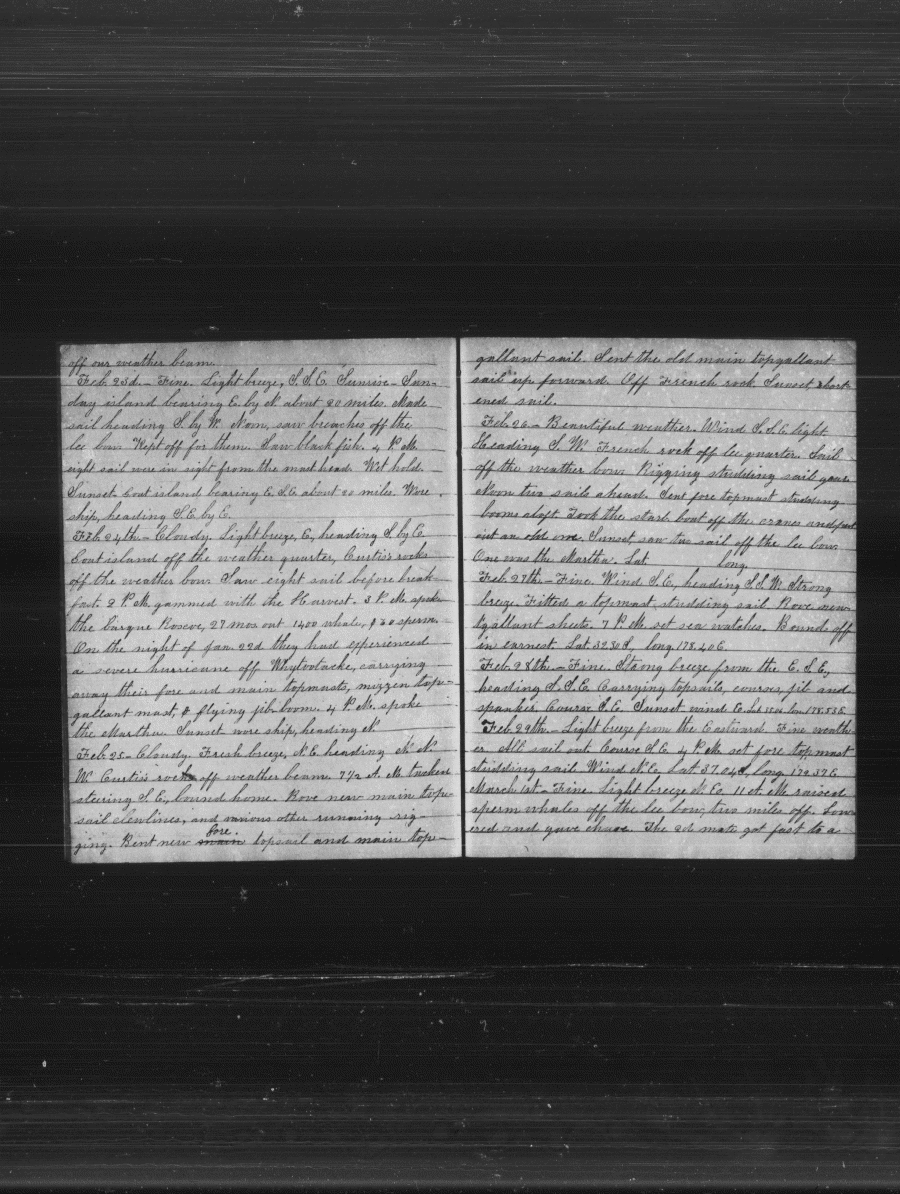 off our weather beam.
Feb. 23d. - Fine. Light breeze, S.S.E. Sunrise - Sun-
day island bearing E. by N. about 20 miles. Made
sail heading S. by W. Noon, saw breaches off the
lee bow. Kept off for them. Saw black fish. 4 P.M.
eight sail were in sight from the mast head. Wrt hold.
Sunset Coat island bearing E.S.E. about 20 miles. Wore
ship, heading S.E. by E.
Feb. 24th. - Cloudy. Light breeze, E, heading S. by E.
Coat island off the weather quarter, Curtis's rocks
off the weather bow. Saw eight sail before break-
fast. 2 P.M. gammed with the Harvest. 3 P.M. spoke
the barque Roscoe, 27 mos. out 1400 whale, & 80 sperm.
On the night of Jan. 22d they had experienced
a severe hurricane off Whytootacke, carrying
away their fore and main topmasts, mizzen top-
gallant mast, & flying jib-boom. 4 P.M. spoke
the Martha. Sunset wore ship, heading N.
Feb. 25 - Cloudy. Fresh breeze, N.E. heading N. N.
W. Curtis's rocks off weather beam. 7 1/2 A. M. tacked
steering S.E., bound home. Rove new main top-
sail clewlines, and various other running rig-
ging. Bent new main fore. topsail and main top-
gallant sail. Sent the old main topgallant
sail up forward. Off French rock Sunset short-
ened sail.
Feb. 26 - Beautiful weather. Wind S.S.E. light
Heading S.W. French rock off lee quarter. Sail
off the weather bow. Rigging studding sail gear
Noon two sails ahead. Sent fore topmast studding
booms aloft Took the starb. boat off the cranes and put
out an old one. Sunset saw two sail off the lee bow.
One was the Martha. Lat long.
Feb. 27th. - Fine. Wind S.E, heading S.S.W. Strong
breeze. Fitted a topmast studding sail Rove new
t'gallant sheets. 7 P.M. set sea watches. Bounds off
in earnest. Lat. 32.30 S, long. 178.40 E.
Feb. 28th. - Fine. Strong breeze from the E.S.E,
heading S.S.E. Carrying topsails, courses, jib and
spanker. Course S.E. Sunset wind E. Lat. lon. 178.55 E.
Feb. 29th. - Light breeze from the Eastward. Fine weath-
er. All sail out. Course S.E. 4 P.M. set fore topmast
studding sail. Wind N.E. Lat. 37.04 S, long. 179.37 E.
March 1st - Fine. Light breeze N. E. 11 A. M. raised
sperm whales off the lee bow, two miles off. Low-
ered and gave chase. The 2d mate got fast to a